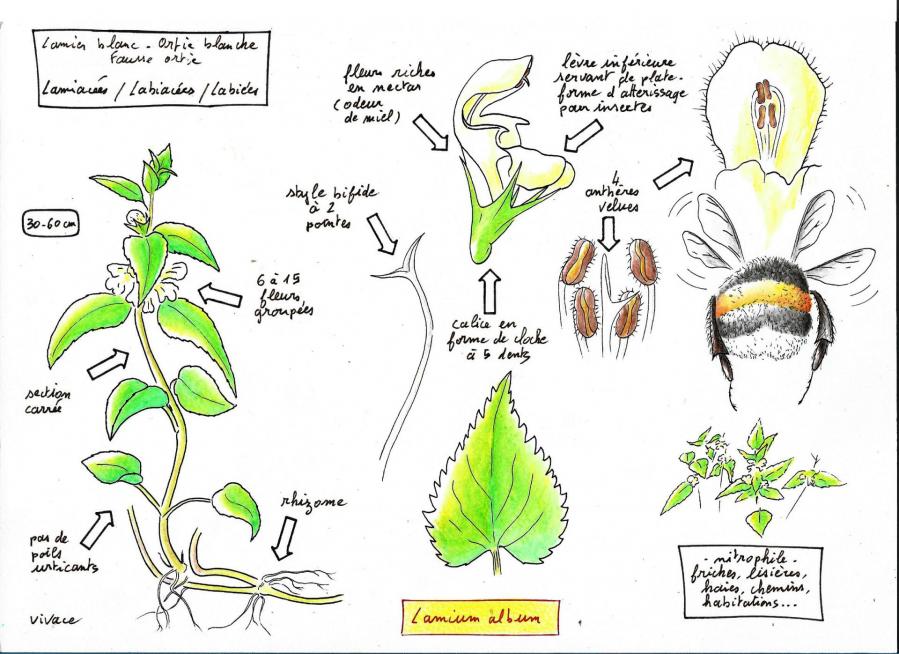 Lamier blanc - Ortie blanche
Fausse ortie
Lamiacées / Labiacées / Labiées
fleurs riches
en nectar
(odeur
de miel)
lèvre inférieure
servant de plate-
forme d'atterissage
pour insectes
style bifide
à 2
pointes
4
anthères
velues
30-60 cm
6 à 15
fleurs
groupées
calice en
forme de cloche
à 5 dents
section
carrée
rhizome
pas de
poils
urticants
- nitrophile -
friches, lisières,
haies, chemins,
habitations...
vivace
Lamium album